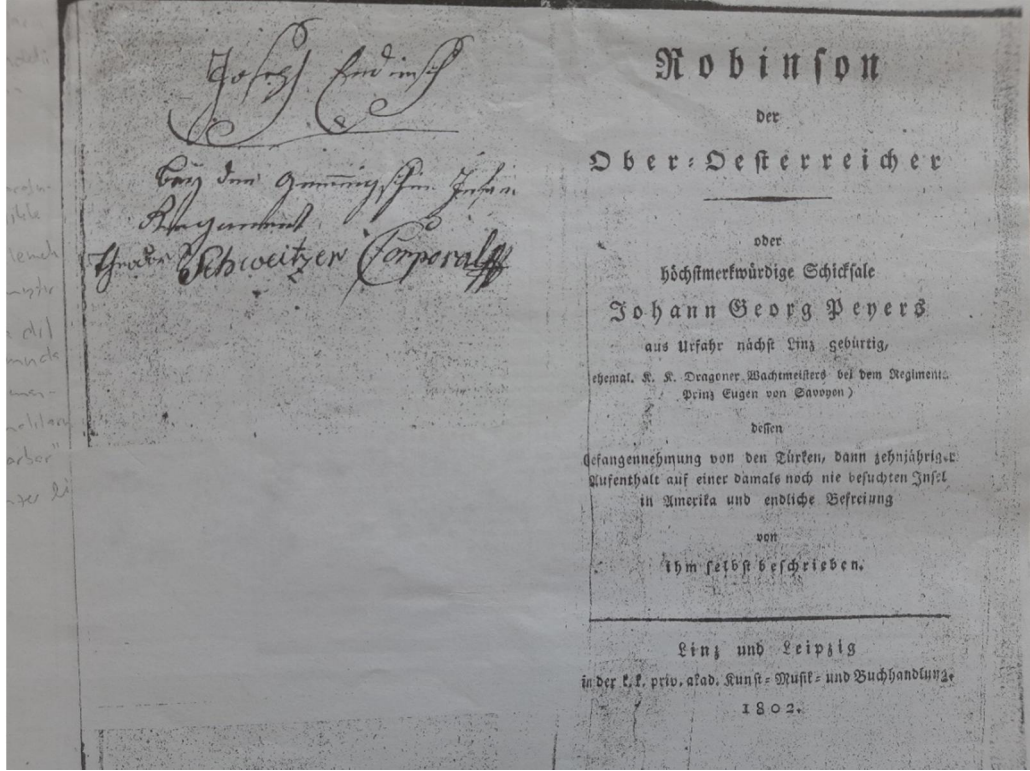 Joseph
bey den Infan
Regament
Theodor Schweitzer Corporal
Robinson
der
Ober-Oesterreicher
oder
höchstmerkwürdige Schicksale
Johann Georg Peyers
aus Urfahr nächst Linz gebürtig,
(ehemal. K. K. Dragoner Wachtmeisters bei dem Regiment
Prinz Eugen von Savoyen)
dessen
Gefangennehmung von den Türken, dann zehnjähriger
Aufenthalt auf einer damals noch nie besuchten Insel
in Amerika und endliche Befreiung
von
ihm selbst beschrieben.
Linz und Leipzig
in der k. k. priv. akad. Kunst- Musik- und Buchhandlung.
1802.